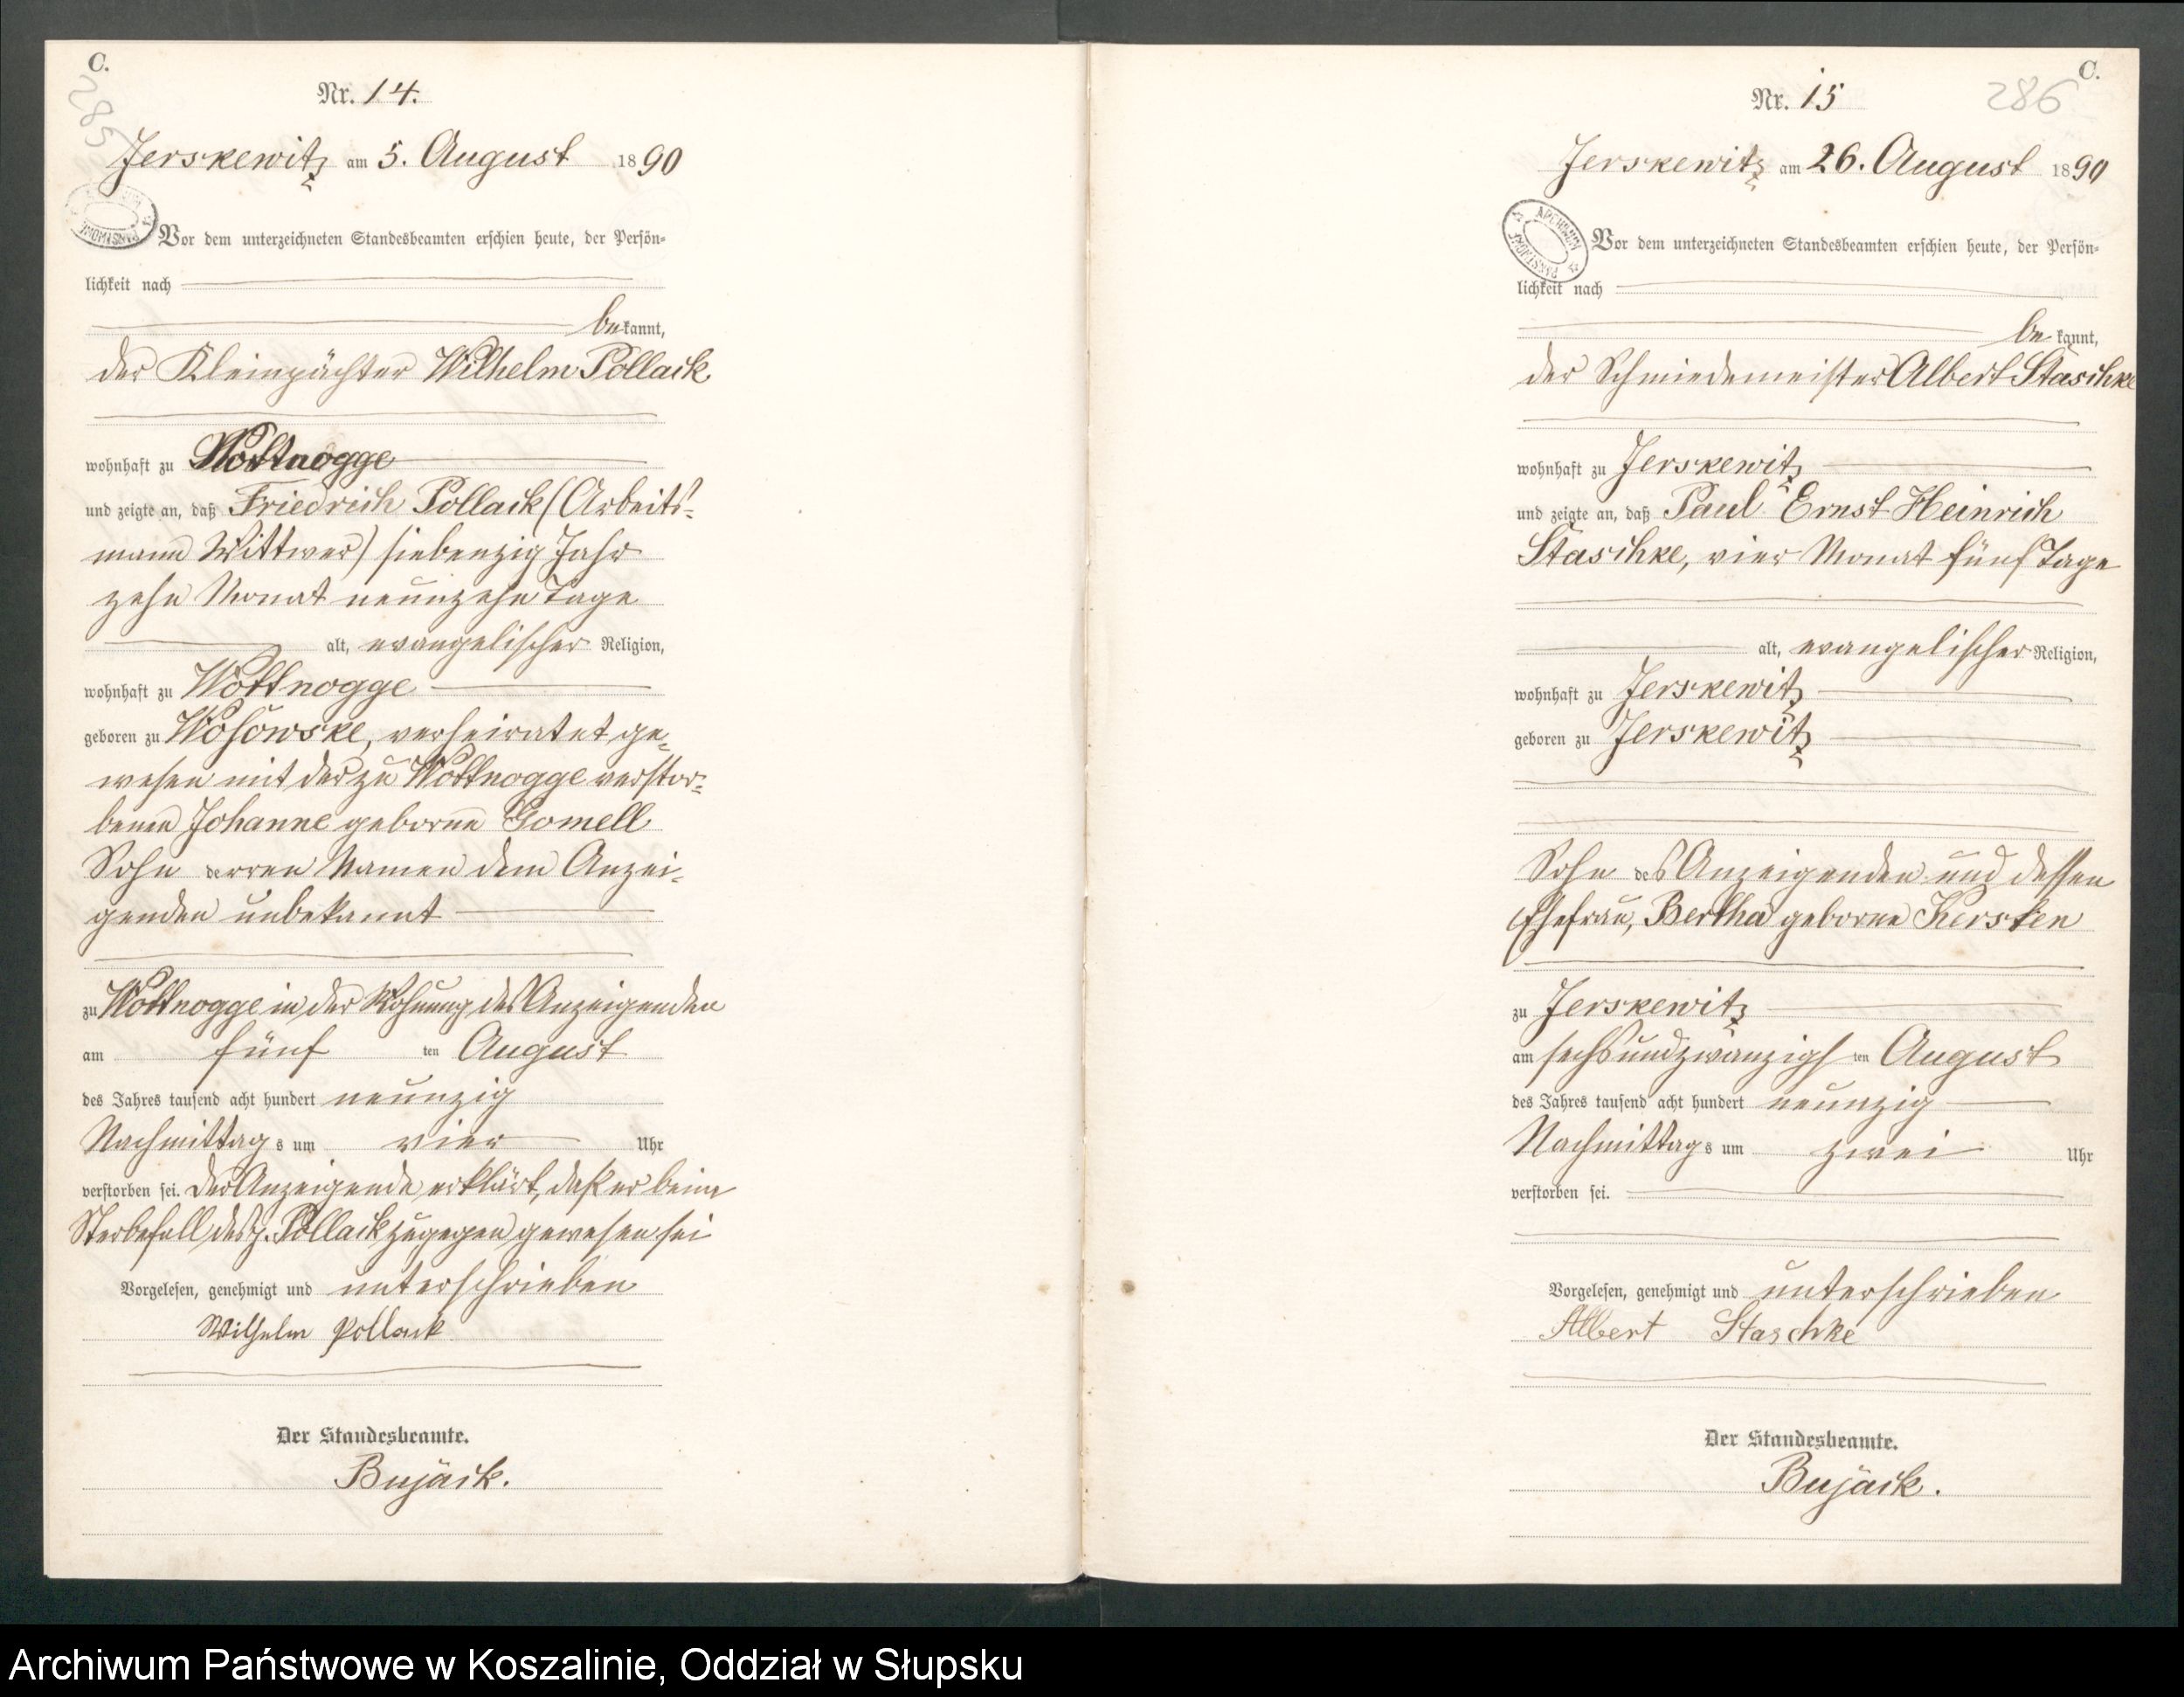 C.
285
Nr. 14.
Jerskewitz am 5. August 1890
Vor dem unterzeichneten Standesbeamten erschien heute, der Persön-
lichkeit nach
bekannt,
der Kleinpächter Wilhelm Pollack
wohnhaft zu Wottnogge
und zeigte an, daß Friedrich Pollack (Arbeits-
mann Wittwer) siebenzig Jahr
zehn Monat neunzehn Tage
alt, evangelischer Religion,
wohnhaft zu Wottnogge
geboren zu Wosowske, verheiratet ge-
wesen mit der zu Wottnogge verstor-
benen Johanne geborne Gomell
Sohn derren Namen dem Anzei-
genden unbekannt
zu Wottnogge in der Wohnung des Anzeigenden
am fünf ten August
des Jahres tausend acht hundert neunzig
Nachmittags um vier Uhr
verstorben sei. Der Anzeigende erklärt, daß er beim
Sterbefall des p. Pollack zugegen gewesen sei
Vorgelesen, genehmigt und unterschrieben
Wilhelm Pollack
Der Standesbeamte.
Bujack.
C.
286
Nr. 15
Jerskewitz am 26. August 1890
ARCHIWUM PAŃSTWOWE
Vor dem unterzeichneten Standesbeamten erschien heute, der Persön-
lichkeit nach
bekannt,
der Schmiedemeister Albert Staschke
wohnhaft zu Jerskewitz
und zeigte an, daß Paul Ernst Heinrich
Staschke, vier Monat fünf Tage
alt, evangelischer Religion,
wohnhaft zu Jerskewitz
geboren zu Jerskewitz
Sohn des Anzeigenden und dessen
Ehefrau, Bertha geborne Kersken
zu Jerskewitz
am sechsundzwanzigsten August
des Jahres tausend acht hundert neunzig
Nachmittags um zwei Uhr
verstorben sei.
Vorgelesen, genehmigt und unterschrieben
Albert Staschke
Der Standesbeamte.
Bujack.
Archiwum Państwowe w Koszalinie, Oddział w Słupsku